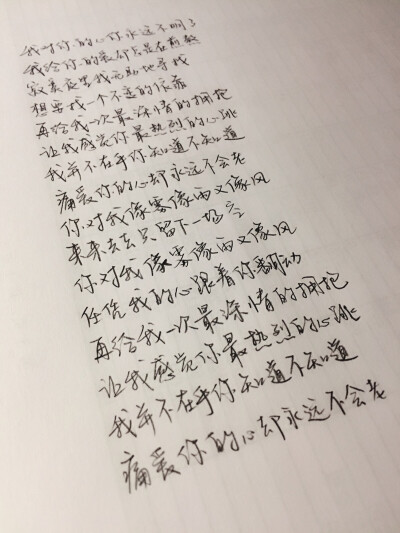 我对你的心你永远不明了
我给你的爱却总是在煎熬
寂寞夜里我无助地寻找
想要找一个不变的依靠
再给我一次最深情的拥抱
让我感觉你最热烈的心跳
我并不在乎你知道不知道
疼爱你的心却永远不会老
你对我像雾像雨又像风
来来去去只留下一场空
你对我像雾像雨又像风
任凭我的心跟着你翻动
再给我一次最深情的拥抱
让我感觉你最热烈的心跳
我并不在乎你知道不知道
痛爱你的心却永远不会老